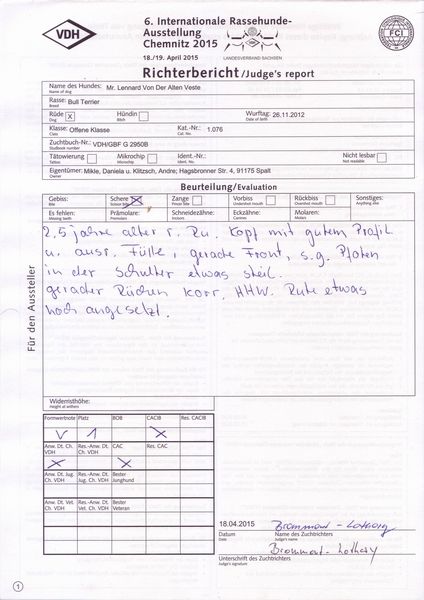 VDH
6. Internationale Rassehunde-
Ausstellung
Chemnitz 2015
18./19. April 2015
LANDESVERBAND SACHSEN
FCI
Richterbericht/Judge's report
Name des Hundes: Mr. Lennard Von Der Alten Veste
Name of dog
Rasse: Bull Terrier
Breed
Rüde x Hündin Wurftag: 26.11.2012
Dog Bitch Date of birth
Klasse: Offene Klasse Kat.-Nr.: 1.076
Class Cat. No.
Zuchtbuch-Nr.: VDH/GBF G 2950B
Studbook number
Tätowierung Mikrochip Ident.-Nr. Nicht lesbar
Tattooing Microchip Ident. No. Not readable
Eigentümer: Mikle, Daniela u. Klitzsch, Andre; Hagsbronner Str. 4, 91175 Spalt
Owner
Beurteilung/Evaluation
Gebiss: Schere X Zange Vorbiss Rückbiss Sonstiges:
Bite Scissor bite Pincer bite Undershot mouth Overshot mouth Anything else
Es fehlen: Prämolare: Schneidezähne: Eckzähne: Molaren:
Missing teeth Premolars Incisors Canines Molars
2,5 Jahre alter r. Rü. Kopf mit gutem Profil
u. ausr. Fülle, gerade Front, s.g. Pfoten
in der Schulter etwas steil.
gerader Rücken korr. HHW. Rute etwas
hoch angesetzt.
Für den Aussteller
Widerristhöhe:
Height at withers
Formwertnote Platz BOB CACIB Res. CACIB
V 1 X
Anw. Dt. Ch. VDH Res.-Anw. Dt. Ch. VDH CAC Res. CAC
X X
Anw. Dt. Jug. Ch. VDH Res.-Anw. Dt. Jug. Ch. VDH Bester Junghund
Anw. Dt. Vet. Ch. VDH Res.-Anw. Dt. Vet. Ch. VDH Bester Veteran
18.04.2015
Datum Name des Zuchtrichters
Date Judge's name
Unterschrift des Zuchtrichters
Judge's signature
1